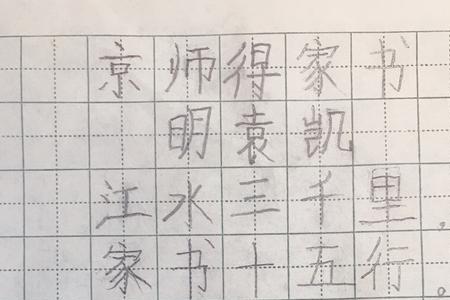 京师得家书
明袁凯
江水三千里，
家书十五行。